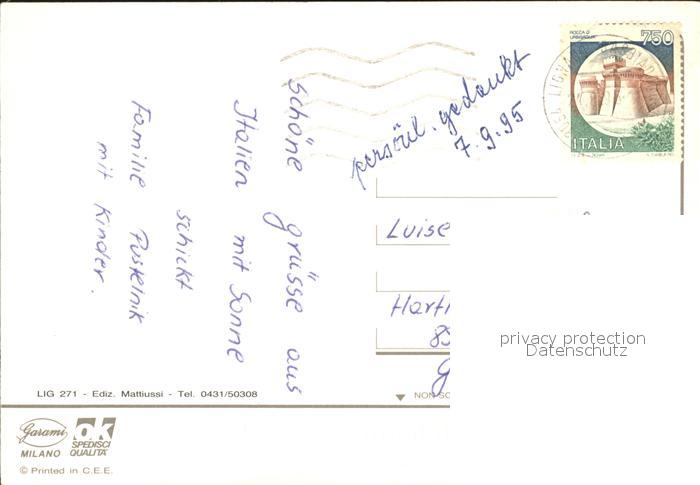 Schöne grüsse aus
Italien mit Sonne
schickt
Familie Pustelnik
mit Kinder.
persönl. gedankt
7.9.95
ROCCA DI URBISAGLIA
750
ITALIA
Luise
Harth
85
privacy protection
Datenschutz
LIG 271 - Ediz. Mattiussi - Tel. 0431/50308
NON SC
Garami
MILANO
OK
SPEDISCI
QUALITA'
© Printed in C.E.E.